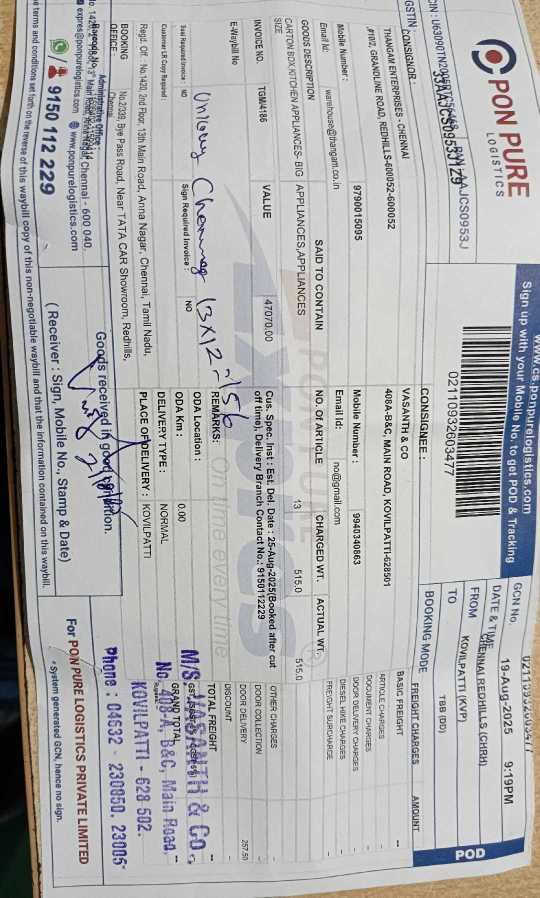 PON PURE
LOGISTICS
www.cs.ponpurelogistics.com
Sign up with your Mobile No. to get POD & Tracking
02110932603477
GCN No. 02110932603477
DATE & TIME 19-Aug-2025 9:19PM
FROM CHENNAI REDHILLS (CHRH)
TO KOVILPATTI (KVP)
BOOKING MODE TBB (DD)
POD
33AAJCS0953J1Z9
CONSIGNOR :
THANGAM ENTERPRISES - CHENNAI
#10/2, GRANDLINE ROAD, REDHILLS-600052-600052
Mobile Number : 9790015095
Email Id: warehouse@thangam.co.in
CONSIGNEE :
VASANTH & CO
408A-B&C, MAIN ROAD, KOVILPATTI-628501
Mobile Number : 9940340863
Email Id: no@gmail.com
GOODS DESCRIPTION SAID TO CONTAIN NO. OF ARTICLE CHARGED WT. ACTUAL WT.
CARTON BOX,KITCHEN APPLIANCES- BIG SIZE APPLIANCES,APPLIANCES 13 515.0 515.0
INVOICE NO. TGM/4186 VALUE 47070.00
E-Waybill No
Cus. Spec. Inst : Est. Del. Date : 25-Aug-2025(Booked after cut off time), Delivery Branch Contact No.: 9150112229
REMARKS:
Seal Required/Invoice NO
Customer LR Copy Required
Sign Required Invoice : NO
13X12=156
ODA Location :
ODA Km : 0.00
DELIVERY TYPE : NORMAL
PLACE OF DELIVERY : KOVILPATTI
Regd. Off. : No.1420, 2nd Floor, 13th Main Road, Anna Nagar, Chennai, Tamil Nadu,
BOOKING OFFICE No.2/339, Bye Pass Road, Near TATA CAR Showroom, Redhills, Chennai
FREIGHT CHARGES AMOUNT
BASIC FREIGHT --
ARTICLE CHARGES
DOCUMENT CHARGES
DOOR DELIVERY CHARGES
DIESEL HIKE CHARGES
FREIGHT SURCHARGE
OTHER CHARGES
DOOR COLLECTION
DOOR DELIVERY 257.50
DISCOUNT
TOTAL FREIGHT --
GRAND TOTAL --
M/S. VASANTH & CO.
No. 408-A, B&C, Main Road,
KOVILPATTI - 628 502.
Phone : 04632 - 230850, 23085
on time every time
Administrative Office
Main Road, Anna Nagar, Chennai - 600 040.
expres@ponpurelogistics.com www.ponpurelogistics.com
9150 112 229
Goods received in good condition.
(Receiver : Sign, Mobile No., Stamp & Date)
For PON PURE LOGISTICS PRIVATE LIMITED
* System generated GCN, hence no sign.
terms and conditions set forth on the reverse of this waybill copy of this non-negotiable waybill and that the information contained on this waybill.